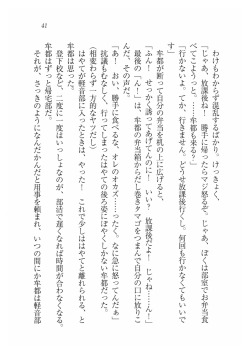 41
わけもわからず混乱するはやて。けっきょく、
「じゃあ、放課後ね！　勝手に帰ったらマジ怒るぞ。じゃあ、ぼくは部室でお弁当食
べようっと。……牟都も来る？」
「行かないよ。てか、行きません。どうせ放課後行くし。何回も行かなくてもいいで
す」
牟都が断って自分の弁当を机の上に広げると、
「ふん！　せっかく誘ってあげてんのに！　いい？　放課後だよ！　じゃね……ん！」
最後の「ん！」は、牟都の弁当箱からだし巻きタマゴをつまんで自分の口に放りこ
んだ、その声だ。
「あ！　おい、勝手に食べるな、オレのオカズ……ったく、なに急に怒ってんだぁ」
抗議もむなしく、走り去ったはやての後ろ姿にぼやくしかない牟都だった。
（相変わらず一方的なヤツだし）
はやてが軽音部に入ったときは、やった！　これで少しははやてと離れられる、と
牟都は思った。
登下校など、一度に一度はいっしょなのが、部活で遅くなれば時間が合わなくなる。
牟都はずっと帰宅部だ。
それが、さっきのようになんだかんだと用事を頼まれ、いつの間にか牟都は軽音部